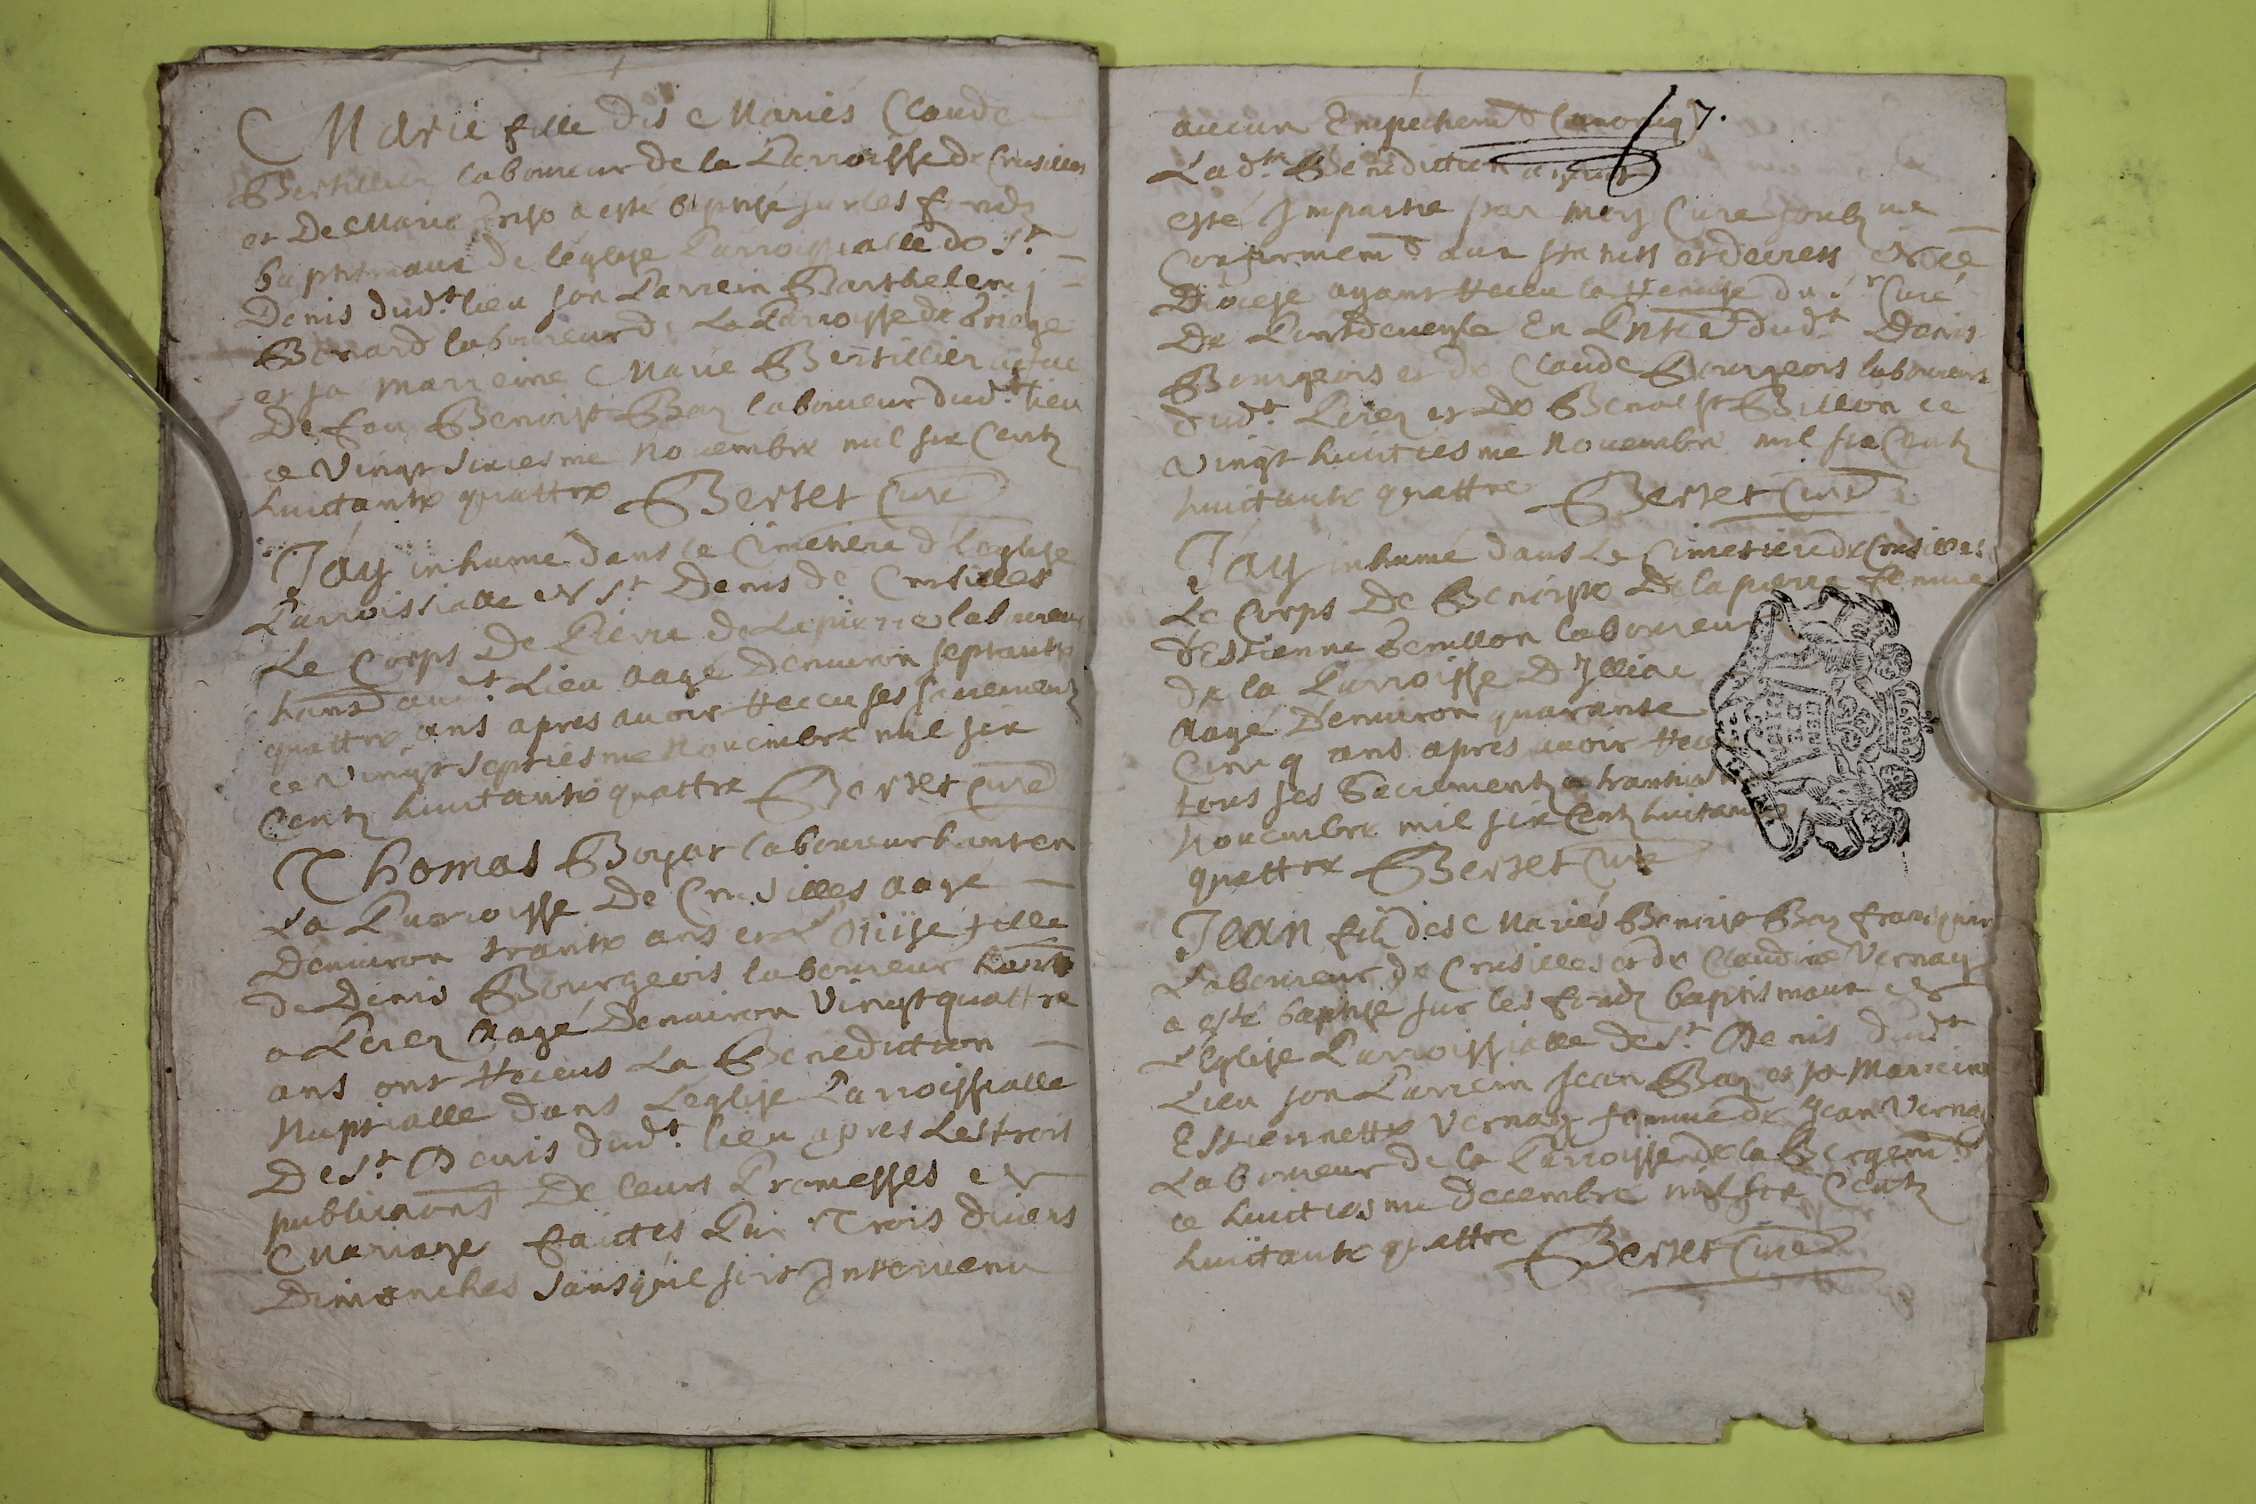 Marie fille des Mariés Claude
Bertillier laboureur de la Parroisse de Crusilles
et De Marie a esté baptisé sur les fondz
baptismaux de léglise Parroissialle de St.
Denis dudt. lieu son Parrein Barthelemj
Benard laboureur de La Parroisse de
et sa Marreine Marie Bertillier
De feu Benoist Bay laboureur dudt. lieu
ce Vingt sixiesme Novembre mil six Centz
huictante quattre Bertet Curé
J'ay inhumé dans le Cimetiere de l'église
Parroissialle de St. Denis de Crusilles
Le Corps De Pierre de Lapierre laboureur
hant audt. Lieu aagé Denuiron septante
quattre ans apres auoir Receu ses sacrementz
ce Vingt septiesme Nouembre mil six
Centz huictante quattre Bertet Curé
Thomas Boyat laboureur hant en
La Parroisse De Crusilles aagé
Denuiron trante ans et Loüise fille
de Denis Bourgeois laboureur hant
a Perez aagé Denuiron Vingt quattre
ans ont Receus La Benediction
Nuptialle dans Leglise Parroissialle
De St. Denis dudt. lieu apres Les trois
publications De leurs Promesses de
Mariage faictes Par Trois diuers
Dimanches sans qu'il soit Interuenu
aucun Empechemt Canoniq 7.
Ladte. Benediction ayant
esté Impartie par moy Curé soubzne
Conformemt aux statuts et decrets de ce
Diocese ayant Receu la Remise du Sr Curé
De Pontdeueyle En Pnce dudt Denis
Bourgeois et de Claude Bourgeois laboureurs
dudt. Perez et De Benoist Billon ce
Vingt huictiesme Nouembre mil six Centz
huictante quattre Bertet Curé
J'ay inhumé dans Le Cimetiere de Crusilles
Le Corps De Benoiste Delapierre femme
d'Estienne laboureur
de la Parroisse D'Illiac
aagé Denuiron quarante
Cinq ans apres auoir Receu
tous ses Sacrementz
Nouembre mil six Centz huictante
quattre Bertet Curé
Jean filz des Mariés Benoist Bay
Laboureur de Crusilles et de Claudine Vernay
a esté baptisé sur les fondz baptismaux de
L'Eglise Parroissialle de St. Denis dudt
Lieu son Parrein Jean Bay et sa Marreine
Estiennette Vernay femme de Jean Vernay
Laboureur de la Parroisse de la
ce huictiesme decembre mil six Centz
huictante quattre Bertet Curé